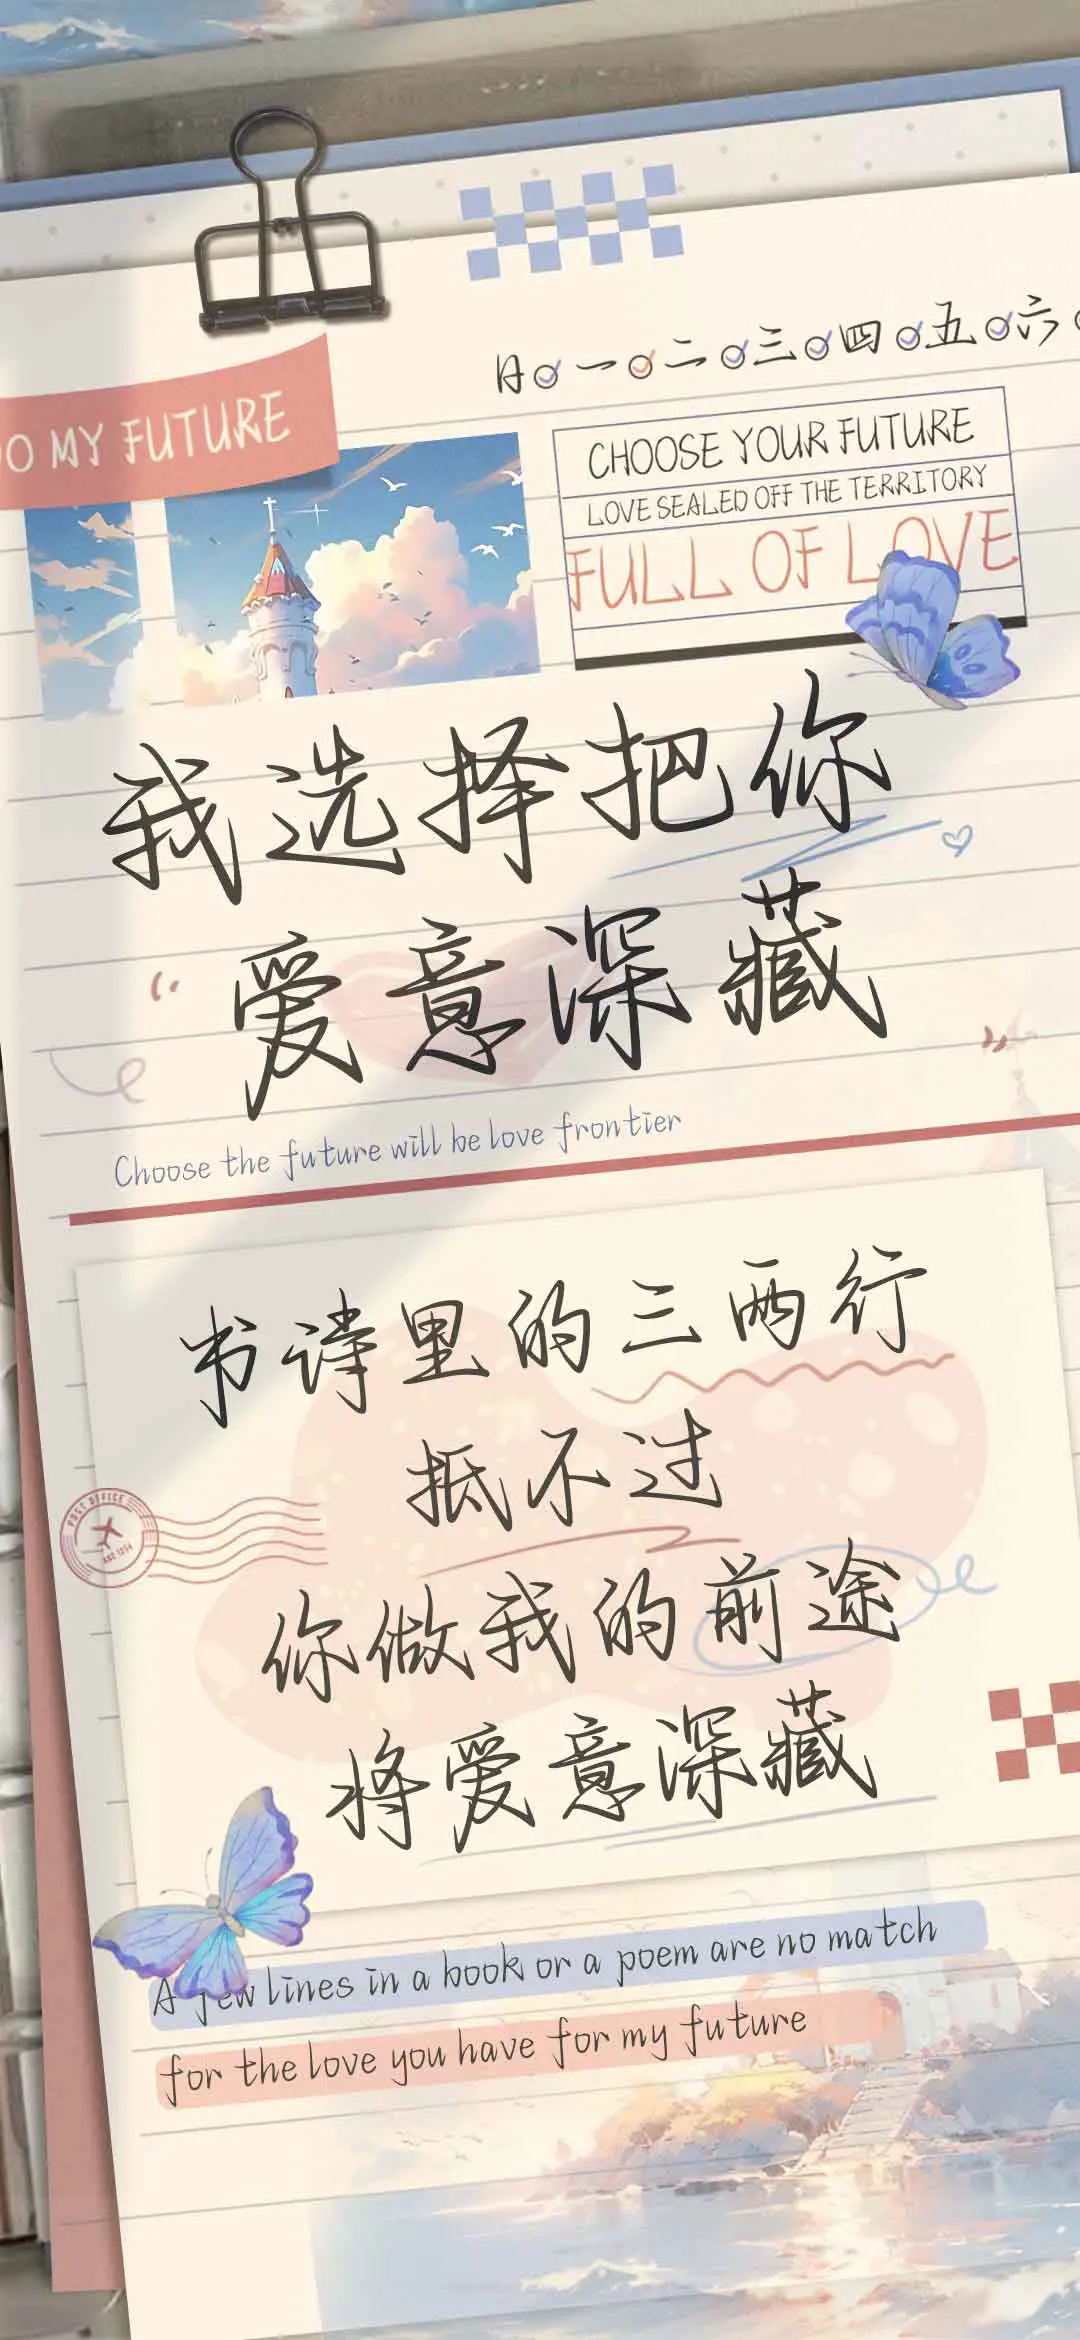 日 一 二 三 四 五 六
O MY FUTURE
CHOOSE YOUR FUTURE
LOVE SEALED OFF THE TERRITORY
FULL OF LOVE
我选择把你
爱意深藏
Choose the future will be love frontier
书诗里的三两行
抵不过
POST OFFICE
你做我的前途
将爱意深藏
A few lines in a book or a poem are no match
for the love you have for my future